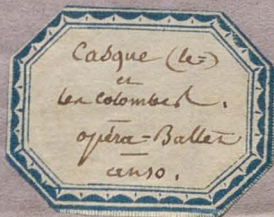 Casque (le=)
et
les colombes.
opéra=Ballet